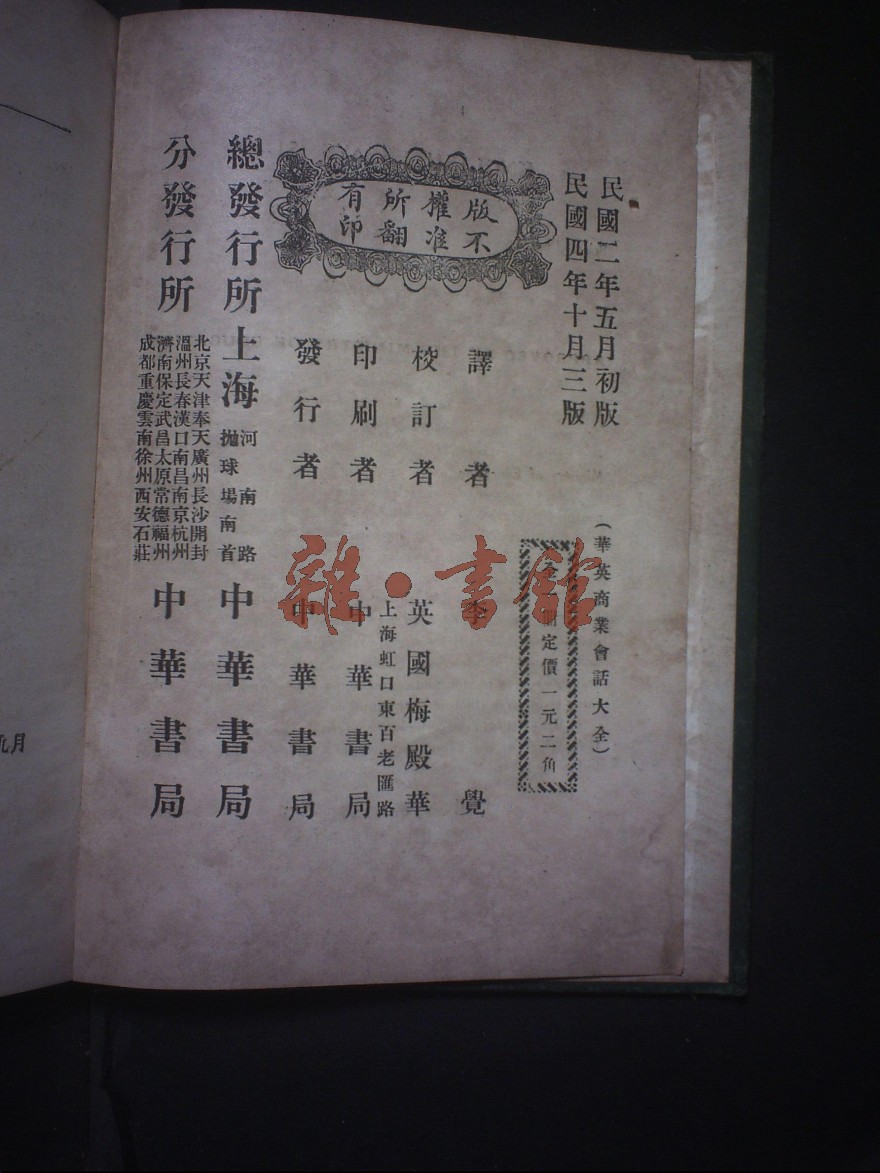 民國二年五月初版
民國四年十月三版
(華英商業會話大全)
定價一元二角
版權所有
不准翻印
譯者 李覺
校訂者 英國梅殿華
印刷者 中華書局
上海虹口東百老匯路
發行者 中華書局
總發行所 上海 河南路拋球場南首 中華書局
分發行所
北京天津奉天廣州長沙開封
溫州長春漢口南昌南京杭州
濟南保定武昌太原常德福州
成都重慶雲南徐州西安石莊
中華書局
雜·書館
九月